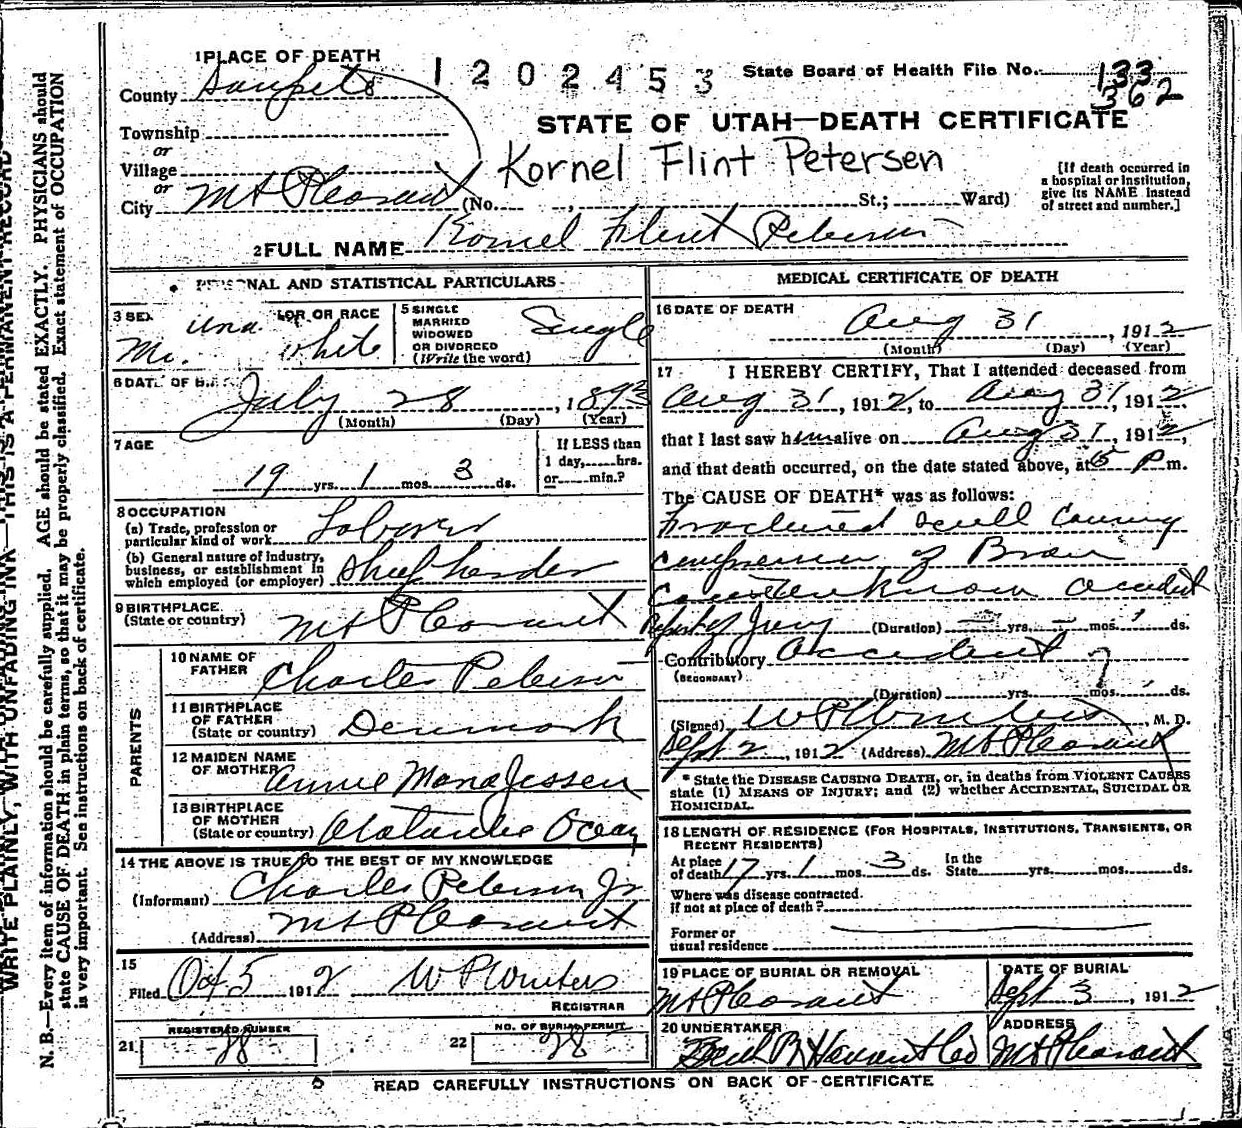 1 PLACE OF DEATH
1202453
State Board of Health File No. 133
362
County Sanpete
STATE OF UTAH—DEATH CERTIFICATE
Township
or
Village
or
Kornel Flint Petersen
[If death occurred in
a hospital or institution,
give its NAME instead
of street and number.]
City Mt Pleasant (No. , St.; Ward)
2 FULL NAME Kornel Flint Petersen
PERSONAL AND STATISTICAL PARTICULARS
3 SEX
M.
COLOR OR RACE
white
5 SINGLE
MARRIED
WIDOWED
OR DIVORCED
(Write the word)
Single
6 DATE OF BIRTH
July 28, 1893
(Month) (Day) (Year)
7 AGE
19 yrs. 1 mos. 3 ds.
If LESS than
1 day, hrs.
or min.?
8 OCCUPATION
(a) Trade, profession or
particular kind of work Laborer
(b) General nature of industry,
business, or establishment in
which employed (or employer) Sheep herder
9 BIRTHPLACE
(State or country) Mt Pleasant
PARENTS
10 NAME OF
FATHER Charles Petersen
11 BIRTHPLACE
OF FATHER
(State or country) Denmark
12 MAIDEN NAME
OF MOTHER Annie Mona Jessen
13 BIRTHPLACE
OF MOTHER
(State or country) Atlantic Ocean
14 THE ABOVE IS TRUE TO THE BEST OF MY KNOWLEDGE
(Informant) Charles Petersen Jr
(Address) Mt Pleasant
15
Filed Oct 5 1912 W P Winters
REGISTRAR
REGISTERED NUMBER
21 28
NO. OF BURIAL PERMIT
22 28
MEDICAL CERTIFICATE OF DEATH
16 DATE OF DEATH
Aug 31, 1912
(Month) (Day) (Year)
17 I HEREBY CERTIFY, That I attended deceased from
Aug 31, 1912, to Aug 31, 1912
that I last saw him alive on Aug 31, 1912,
and that death occurred, on the date stated above, at 5 P m.
The CAUSE OF DEATH* was as follows:
Fractured Scull Causing
compression of Brain
Accident
Report of Jury (Duration) yrs. mos. ds.
Contributory Accident
(SECONDARY)
(Duration) yrs. mos. ds.
(Signed) W P Winters, M. D.
Sept 2, 1912 (Address) Mt Pleasant
* State the DISEASE CAUSING DEATH, or, in deaths from VIOLENT CAUSES
state (1) MEANS OF INJURY; and (2) whether ACCIDENTAL, SUICIDAL OR
HOMICIDAL.
18 LENGTH OF RESIDENCE (FOR HOSPITALS, INSTITUTIONS, TRANSIENTS, OR
RECENT RESIDENTS)
At place
of death 17 yrs. 1 mos. 3 ds.
In the
State yrs. mos. ds.
Where was disease contracted.
if not at place of death?
Former or
usual residence
19 PLACE OF BURIAL OR REMOVAL
Mt Pleasant
DATE OF BURIAL
Sept 3, 1912
20 UNDERTAKER
ADDRESS
Mt Pleasant
READ CAREFULLY INSTRUCTIONS ON BACK OF CERTIFICATE
WRITE PLAINLY, WITH UNFADING INK—THIS IS A PERMANENT RECORD
N. B.—Every item of information should be carefully supplied. AGE should be stated EXACTLY. PHYSICIANS should
state CAUSE OF DEATH in plain terms, so that it may be properly classified. Exact statement of OCCUPATION
is very important. See instructions on back of certificate.